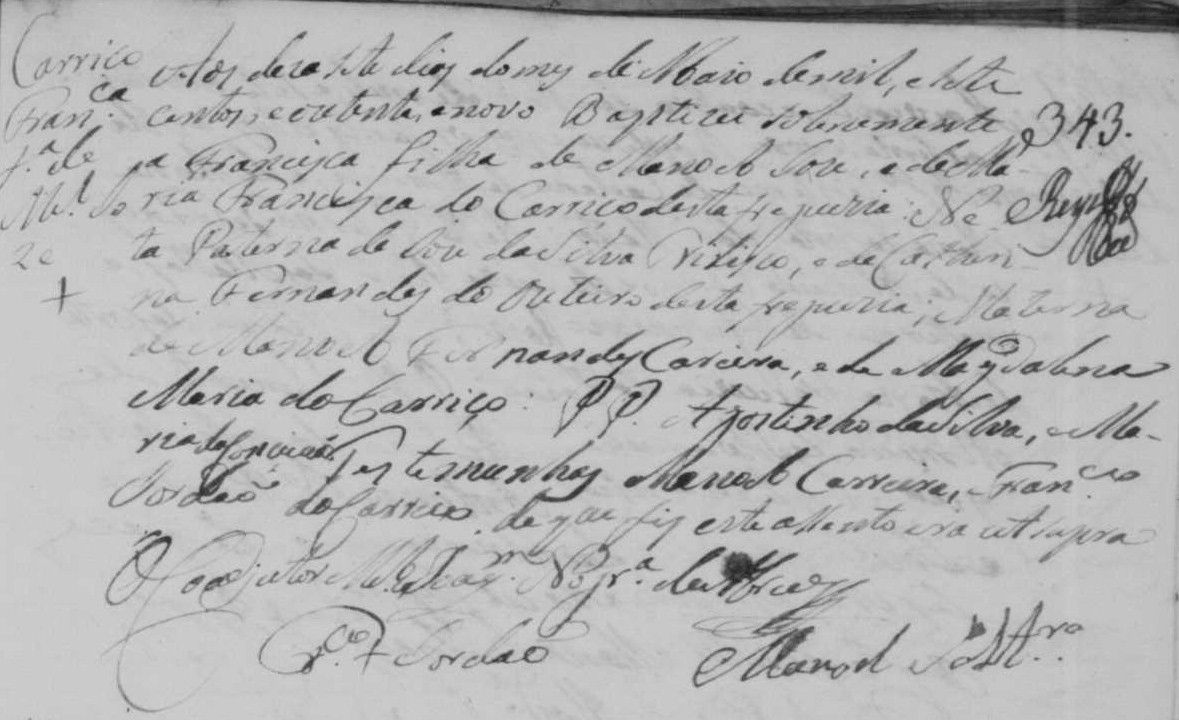 Carriço
Fran.ca
f.a de
M.el Jo
ze
+
Aos dezasete dias do mes de Maio de mil, e sete
centos e outenta, e novo Baptizei solenemente
a Francisca filha de Manoel Joze, e de Ma-
ria Francisca do Carriço desta freguezia: Ne-
ta Paterna de Joze da Silva, e de Cathari-
na Fernandes do Outeiro desta freguezia; Materna
de Manoel Fernandes Careira, e de Magdalena
Maria do Carriço: P.P. Agostinho da Silva, e Ma-
ria da Conceição Testemunhas Manoel Carreira, e Fran.co
Jordão do Carriço, de que fiz este assento era ut supra
O Coadjutor M.el Joaq.m
Fr.co + Jordão
Manoel
343.